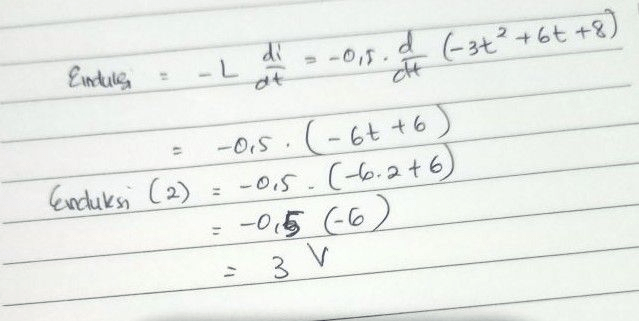 Einduksi = -L di/dt = -0,5 . d/dt (-3t² + 6t + 8)
= -0,5 . (-6t + 6)
Einduksi (2) = -0,5 . (-6.2 + 6)
= -0,5 (-6)
= 3 V